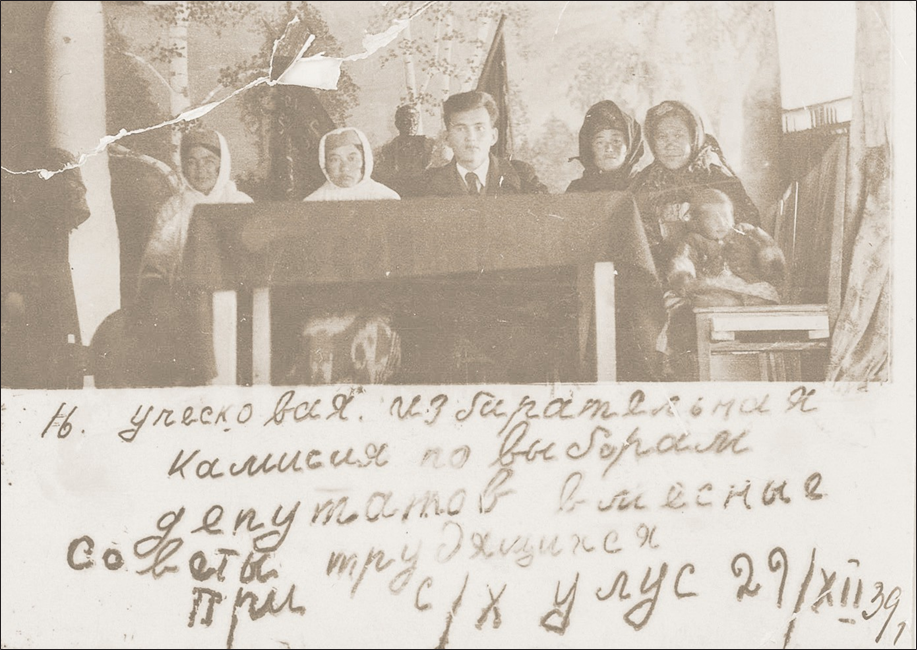 16. уческовая. избирательная
Камисия по выборам
депутатов вмесные
Советы трудящихся
При с/х улус 29/XII 39/1